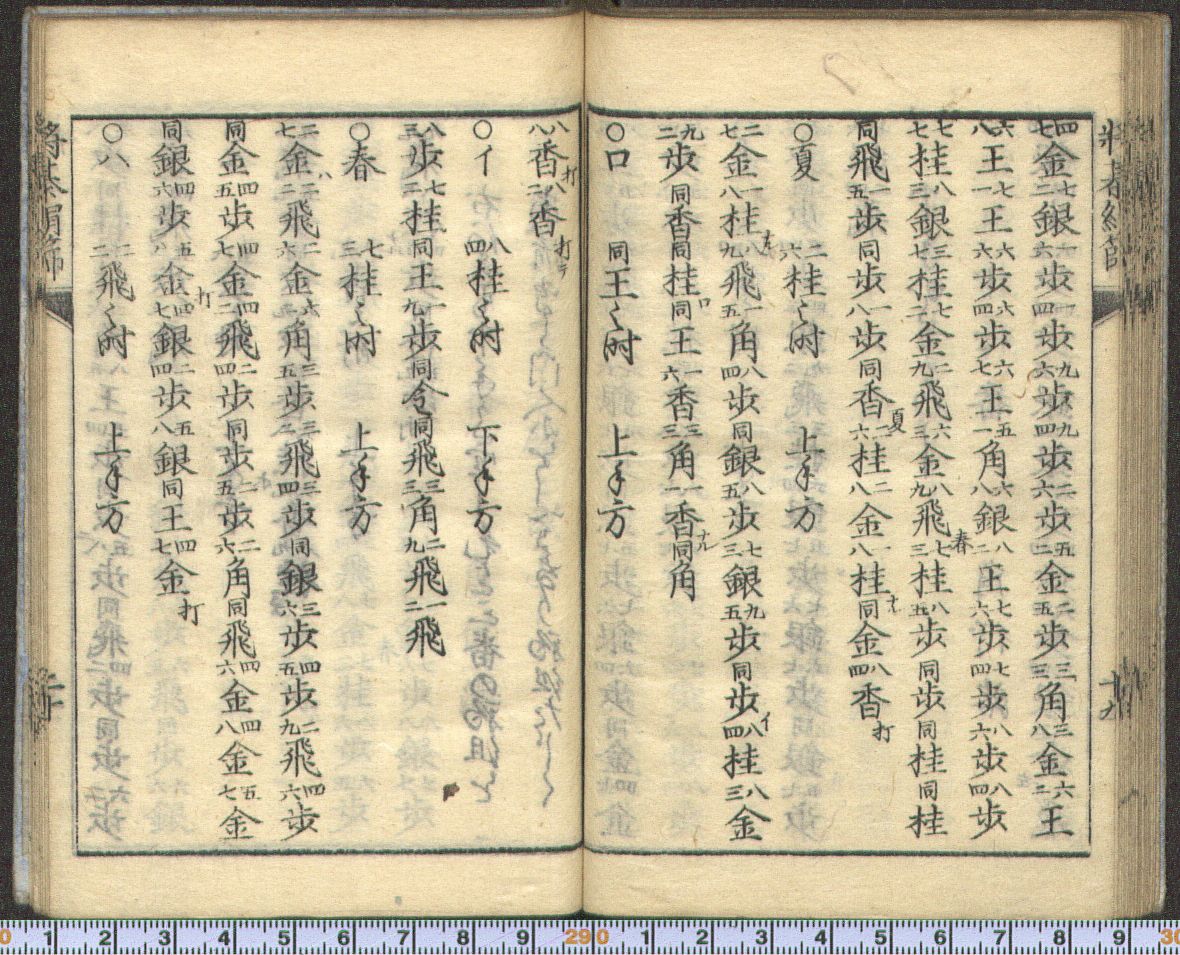 七四金二七銀六一歩四一歩六九歩四九歩六二歩二五金五二歩三三角八三金二六王
八六王一七王六六歩四六歩七六王一五角八六銀二八王六七歩四七歩六八歩四八歩
七七桂三八銀七三桂二七金九二飛三六金九八飛三七桂五八歩同歩同桂同桂
同飛五一歩同歩八一歩同香六二桂八二金八一桂同金四八香打
夏
春
○夏 六二桂之時 上手方
七二金八一桂九八飛五一角四八歩同銀五八歩三七銀五九歩同歩四八桂三八金
二九歩同香同桂同王六一香三三角一一香同角
○ロ 同王之時 上手方
八八香打二八香打
○イ 四八桂之時 下手方
三八歩二七桂同王九一歩同令同飛三三角九二飛二一飛
○春 三七桂之時 上手方
七二金二三飛六二金二六角五三歩二三飛四三歩同銀六三歩五四歩九二飛六四歩
同金五四歩七四金二四飛四二歩同歩五二歩六二角同飛六四金八四金七五金
同銀六四歩八五金七四銀四二歩八五銀同王七四金打
○ハ 二二飛之時 上手方
十九
二十